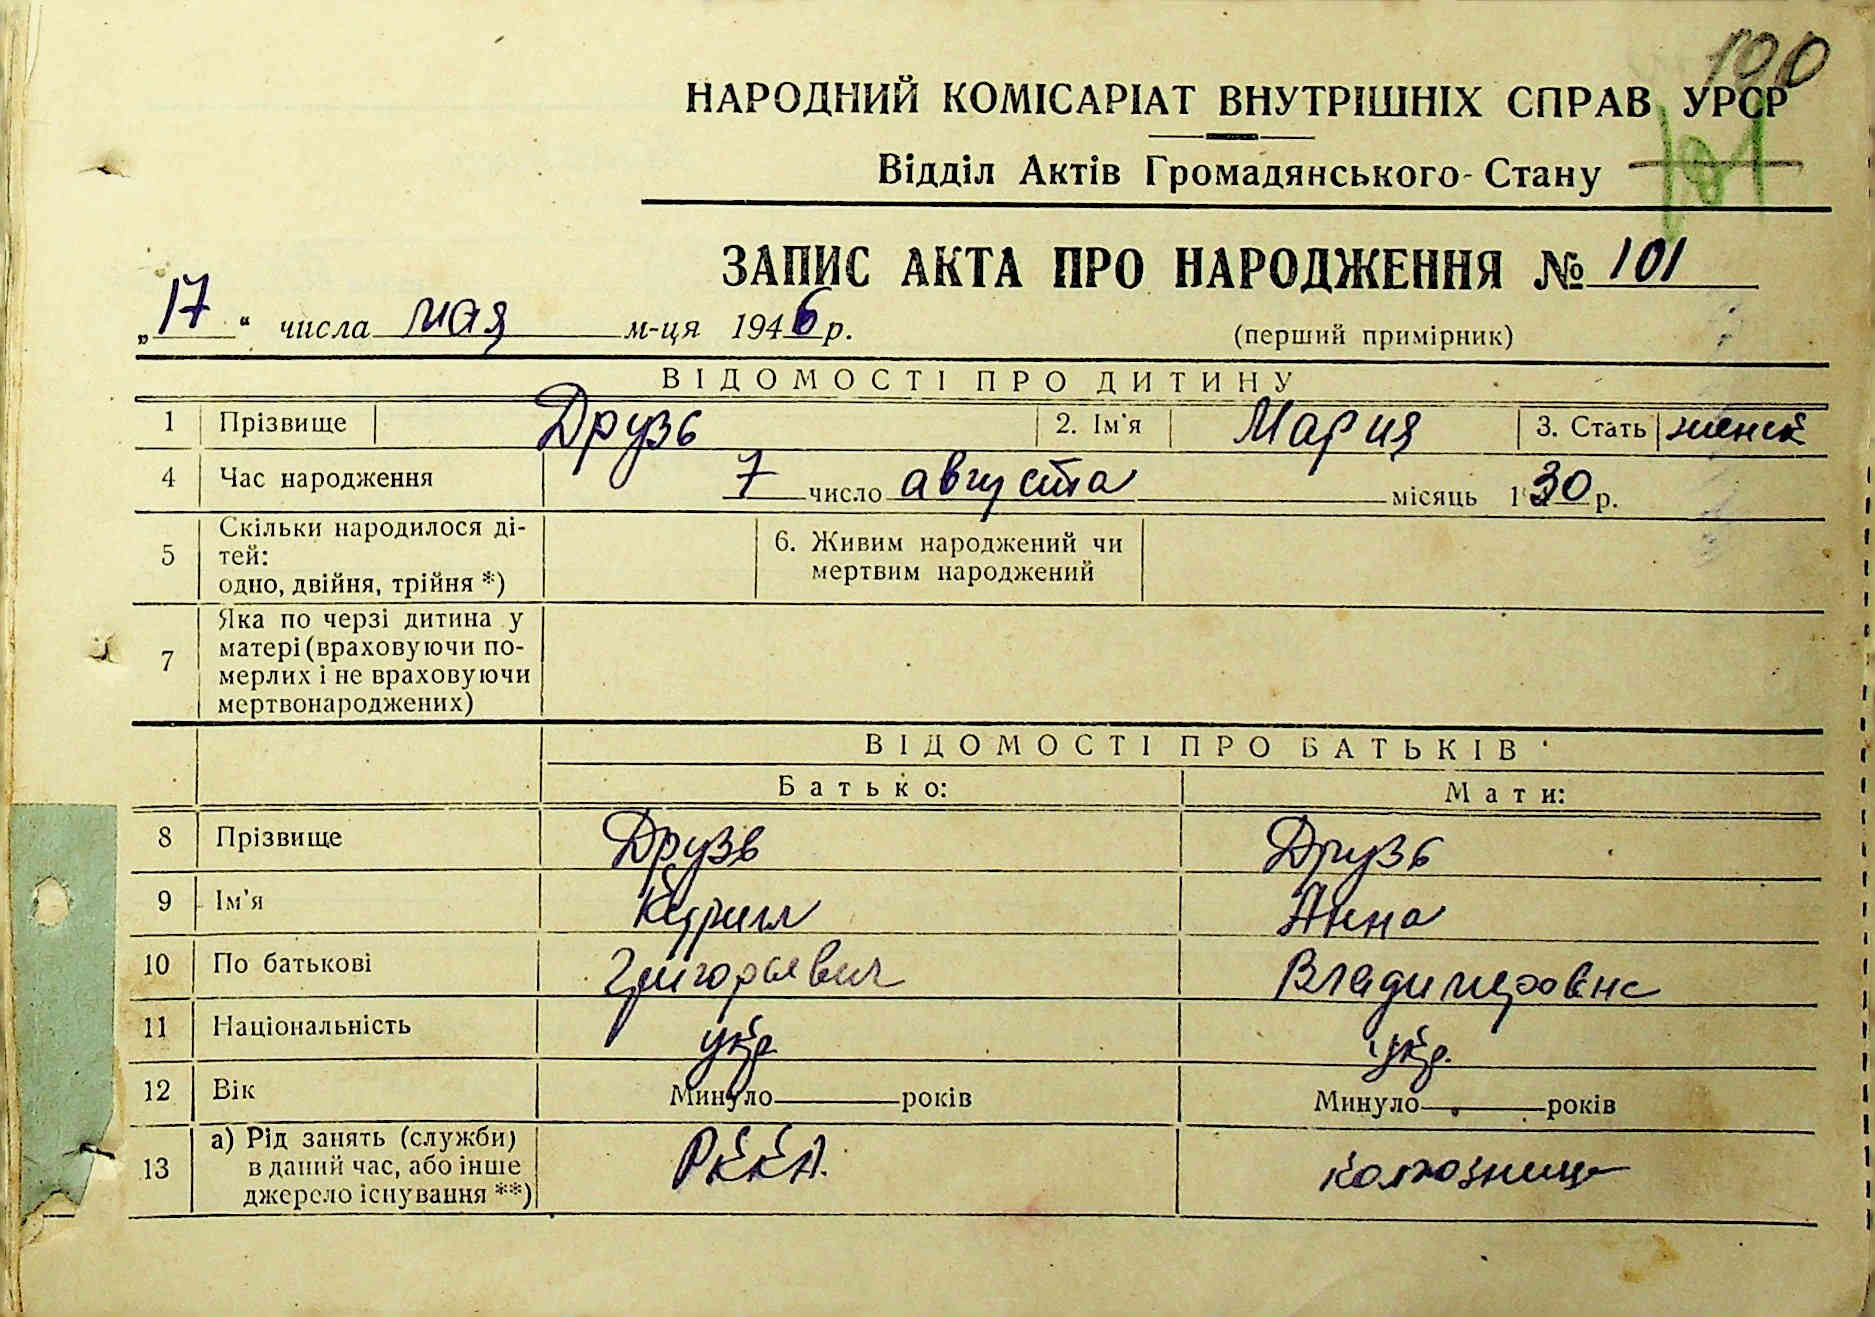 190
НАРОДНИЙ КОМІСАРІАТ ВНУТРІШНІХ СПРАВ УРСР
Відділ Актів Громадянського Стану
101
ЗАПИС АКТА ПРО НАРОДЖЕННЯ № 101
„17“ числа мая м-ця 1946 р.
(перший примірник)
ВІДОМОСТІ ПРО ДИТИНУ
1 Прізвище Друзь 2. Ім'я Мария 3. Стать женск
4 Час народження 7 число августа місяць 1930 р.
5 Скільки народилося ді-
тей:
одно, двійня, трійня *)
6. Живим народжений чи
мертвим народжений
7 Яка по черзі дитина у
матері (враховуючи по-
мерлих і не враховуючи
мертвонароджених)
ВІДОМОСТІ ПРО БАТЬКІВ
Батько: Мати:
8 Прізвище Друзь Друзь
9 Ім'я Кирилл Анна
10 По батькові Григорьевич Владимировна
11 Національність укр укр.
12 Вік Минуло року років Минуло років
13 а) Рід занять (служби)
в даний час, або інше
джерело існування **)
РККА. колхозница